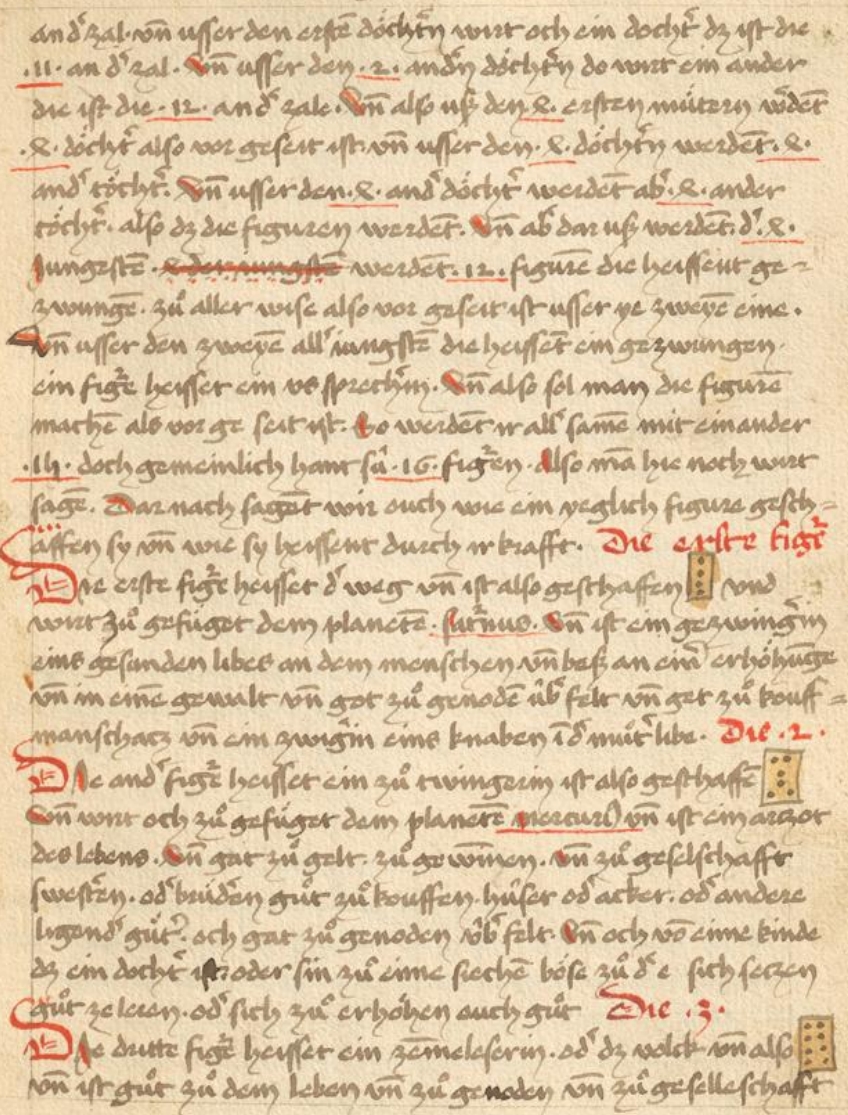 and᷑ zal· vn̄ usser den erstē döchtn̄ wirt och ein docht᷑ dz ist die
·11· an d᷑ zal· Vn̄ usser den ·2· andn̄ döchtn̄ do wirt ein ander
die ist die ·12· an d᷑ zale· Vn̄ also uß den ·ꝝ· ersten mütern wdēt
·ꝝ· döcht᷑ also vor geseit ist· vn̄ usser den ·ꝝ· döchtn̄ werdēt ·ꝝ·
and᷑ töcht᷑· Vn̄ usser den ·ꝝ· and᷑ döcht᷑ werdēt ab᷑ ·ꝝ· ander
töcht᷑· also dz die figuren werdēt· Vn̄ ab᷑ dar uß werdēt d᷑ ·ꝝ·
Jungestē werdēt ·12· figurē die heissent ge-
zwungē· zů aller wise also vor geseit ist usser ye zweyē eine·
Vn̄ usser den zweyē all᷑ iungstē die heissēt ein gezwungen·
ein fig᷑e heisset ein vs sprech᷑in· Vn̄ also sol man die figurē
machē als vor ge seit ist· So werdēt ir all᷑ samē mit einander
·14· doch gemeinlich hant sů ·16· fig᷑en· Also mā hie noch wirt
sagē· Dar nach sagēt wir ouch wie ein yeglich figure gesch-
affen sy vn̄ wie sy heissent durch ir krafft· Die erste fig᷑e
Die erste fig᷑e heisset d᷑ weg vn̄ ist also geschaffen und
wirt zů gefüget dem planetē· sat᷑nus· Vn̄ ist ein gezwing᷑in
eins gesunden libes an dem menschen vn̄ beß an eim᷑ erhöhūge
vn̄ in einē gewalt vn̄ got zů genodē üb᷑ felt vn̄ get zů kouff-
manschacz vn̄ ein zwig᷑in eins knaben ī d᷑ mut᷑ libe· Die ·2·
Die and᷑ fig᷑e heisset ein zů twingerin ist also geschaffē
Vn̄ wirt och zů gefüget dem planetē mercuri9 vn̄ ist ein arczot
des lebens· Vn̄ gat zů gelt· zů gewinnen· vn̄ zů geselschafft
swest᷑en· od᷑ brüd᷑en güt zů kouffen· hüser od᷑ acker· od᷑ andere
ligend᷑ güt᷑· och gat zů genoden vb᷑ felt· Vn̄ och vō eime kinde
dz ein docht᷑ ist oder sin zů eime siechē böse zů d᷑ e sich seczen
güt ze leren· od᷑ sich zů erhöhen auch güt Die ·3·
Die dritte fig᷑e heisset ein zēmeleserin· od᷑ dz volck vn̄ also
vn̄ ist güt zů dem leben vn̄ zů genoden vn̄ zů geselleschafft